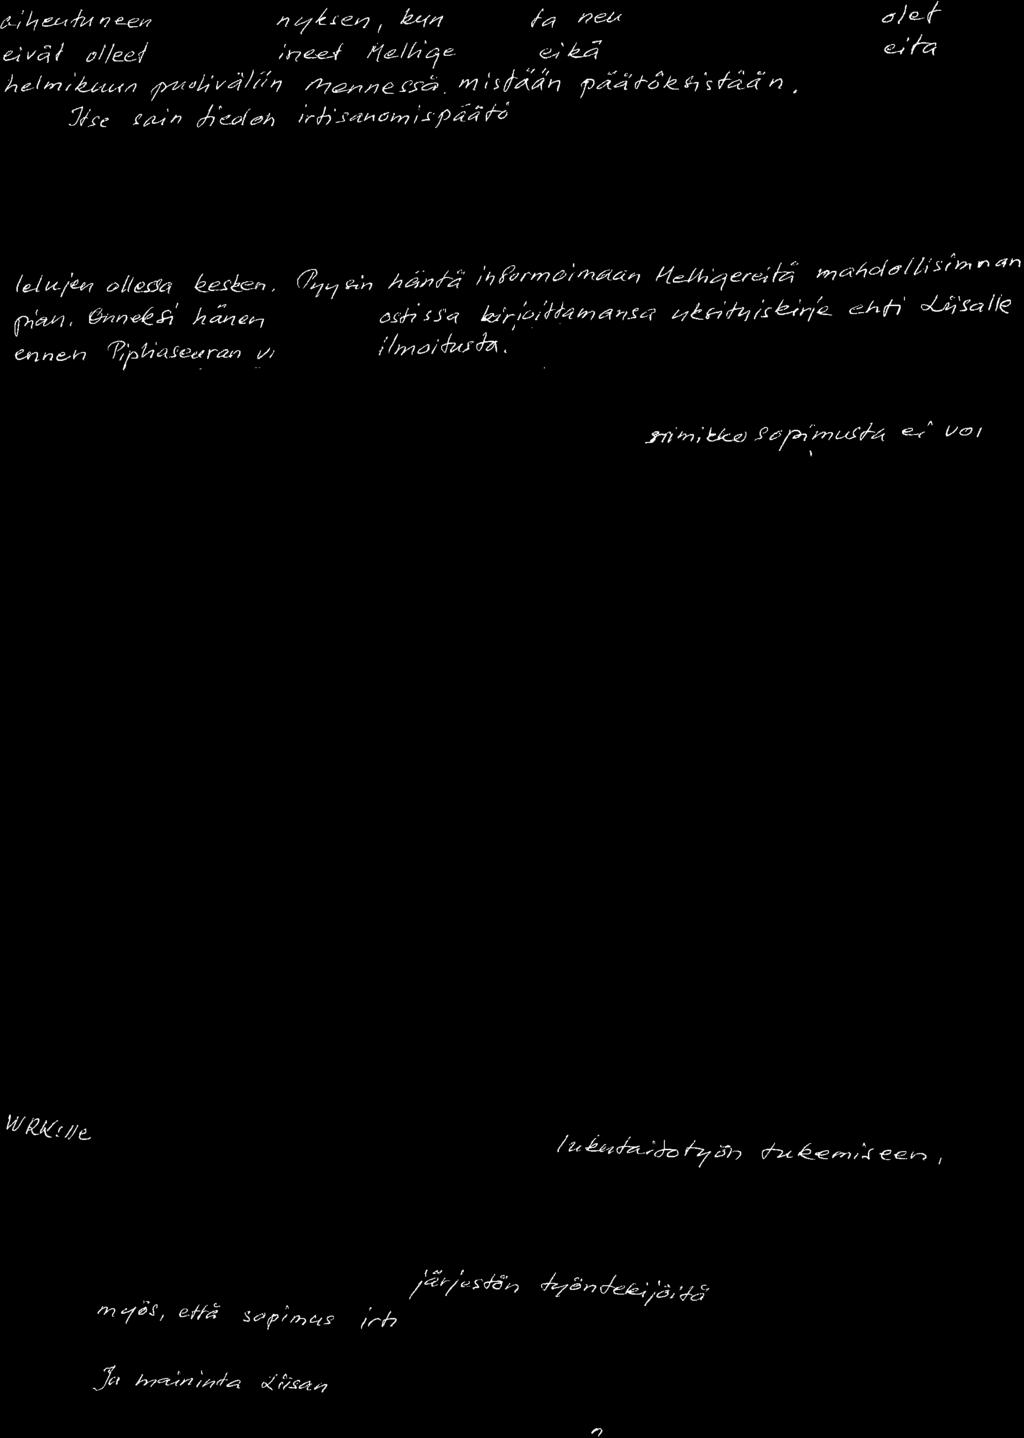 aiheutuneen nyksen, kun ta neu olet
eivät olleet ineet Mellige eikä eita
helmikuun puoliväliin mennessä mistään päätöksistään.
Itse sain tiedon irtisanomispäätö
lelujen ollessa kesken. Pyysin häntä informoimaan Helligereitä mahdollisimman
pian. Onneksi hänen ostissa kirjoittamansa yksityiskirje ehti Liisalle
ennen Pipliaseuran vi ilmoitusta.
nimikkosopimusta ei voi
WRK:lle
lukutaitotyön tukemiseen,
järjestön työntekijöitä
myös, että sopimus irti
Ja maininta Liisan